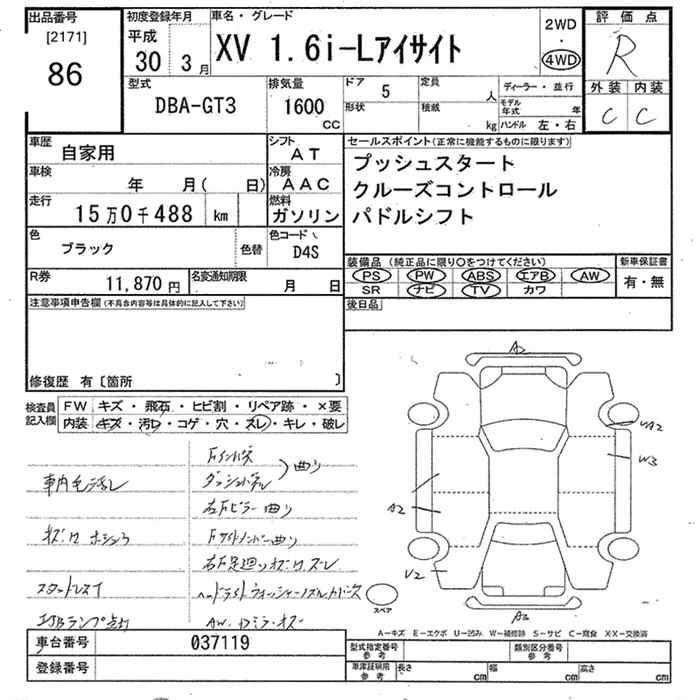 出品番号 初度登録年月 車名・グレード 2WD 評価点
[2171] 平成 ・
86 30 3月 XV 1.6i-Lアイサイト 4WD R
型式 排気量 ドア 5 定員 人 ディーラー・並行 外装 内装
DBA-GT3 1600 cc 形状 積載 kg モデル年式 年 C C
ハンドル 左・右
車歴 自家用 シフト AT セールスポイント(正常に機能するものに限ります)
車検 年 月( 日) 冷房 AAC プッシュスタート
走行 15万0千488 km 燃料 ガソリン クルーズコントロール
パドルシフト
色 ブラック 色替 色コード D4S
装備品(純正品に限り○をつけてください) 新車保証書
R券 11,870円 名変通知期限 月 日 PS PW ABS エアB AW 有・無
SR ナビ TV カワ
注意事項申告欄(不具合内容等は具体的に記入して下さい) 後日品
修復歴 有〔箇所 〕
検査員記入欄 FW キズ・飛石・ヒビ割・リペア跡・×要
内装 キズ・汚レ・コゲ・穴・スレ・キレ・破レ
曲り
右Fピラー曲り
スタッドレスタイ
A2
A2
W3
A2
V2
A2
スペア
A-キズ E-エクボ U-凹み W-補修跡 S-サビ C-腐食 XX-交換済
車台番号 037119 型式指定番号 参考 類別区分番号 参考
登録番号 車庫証明用 参考 長さ cm 幅 cm 高さ cm